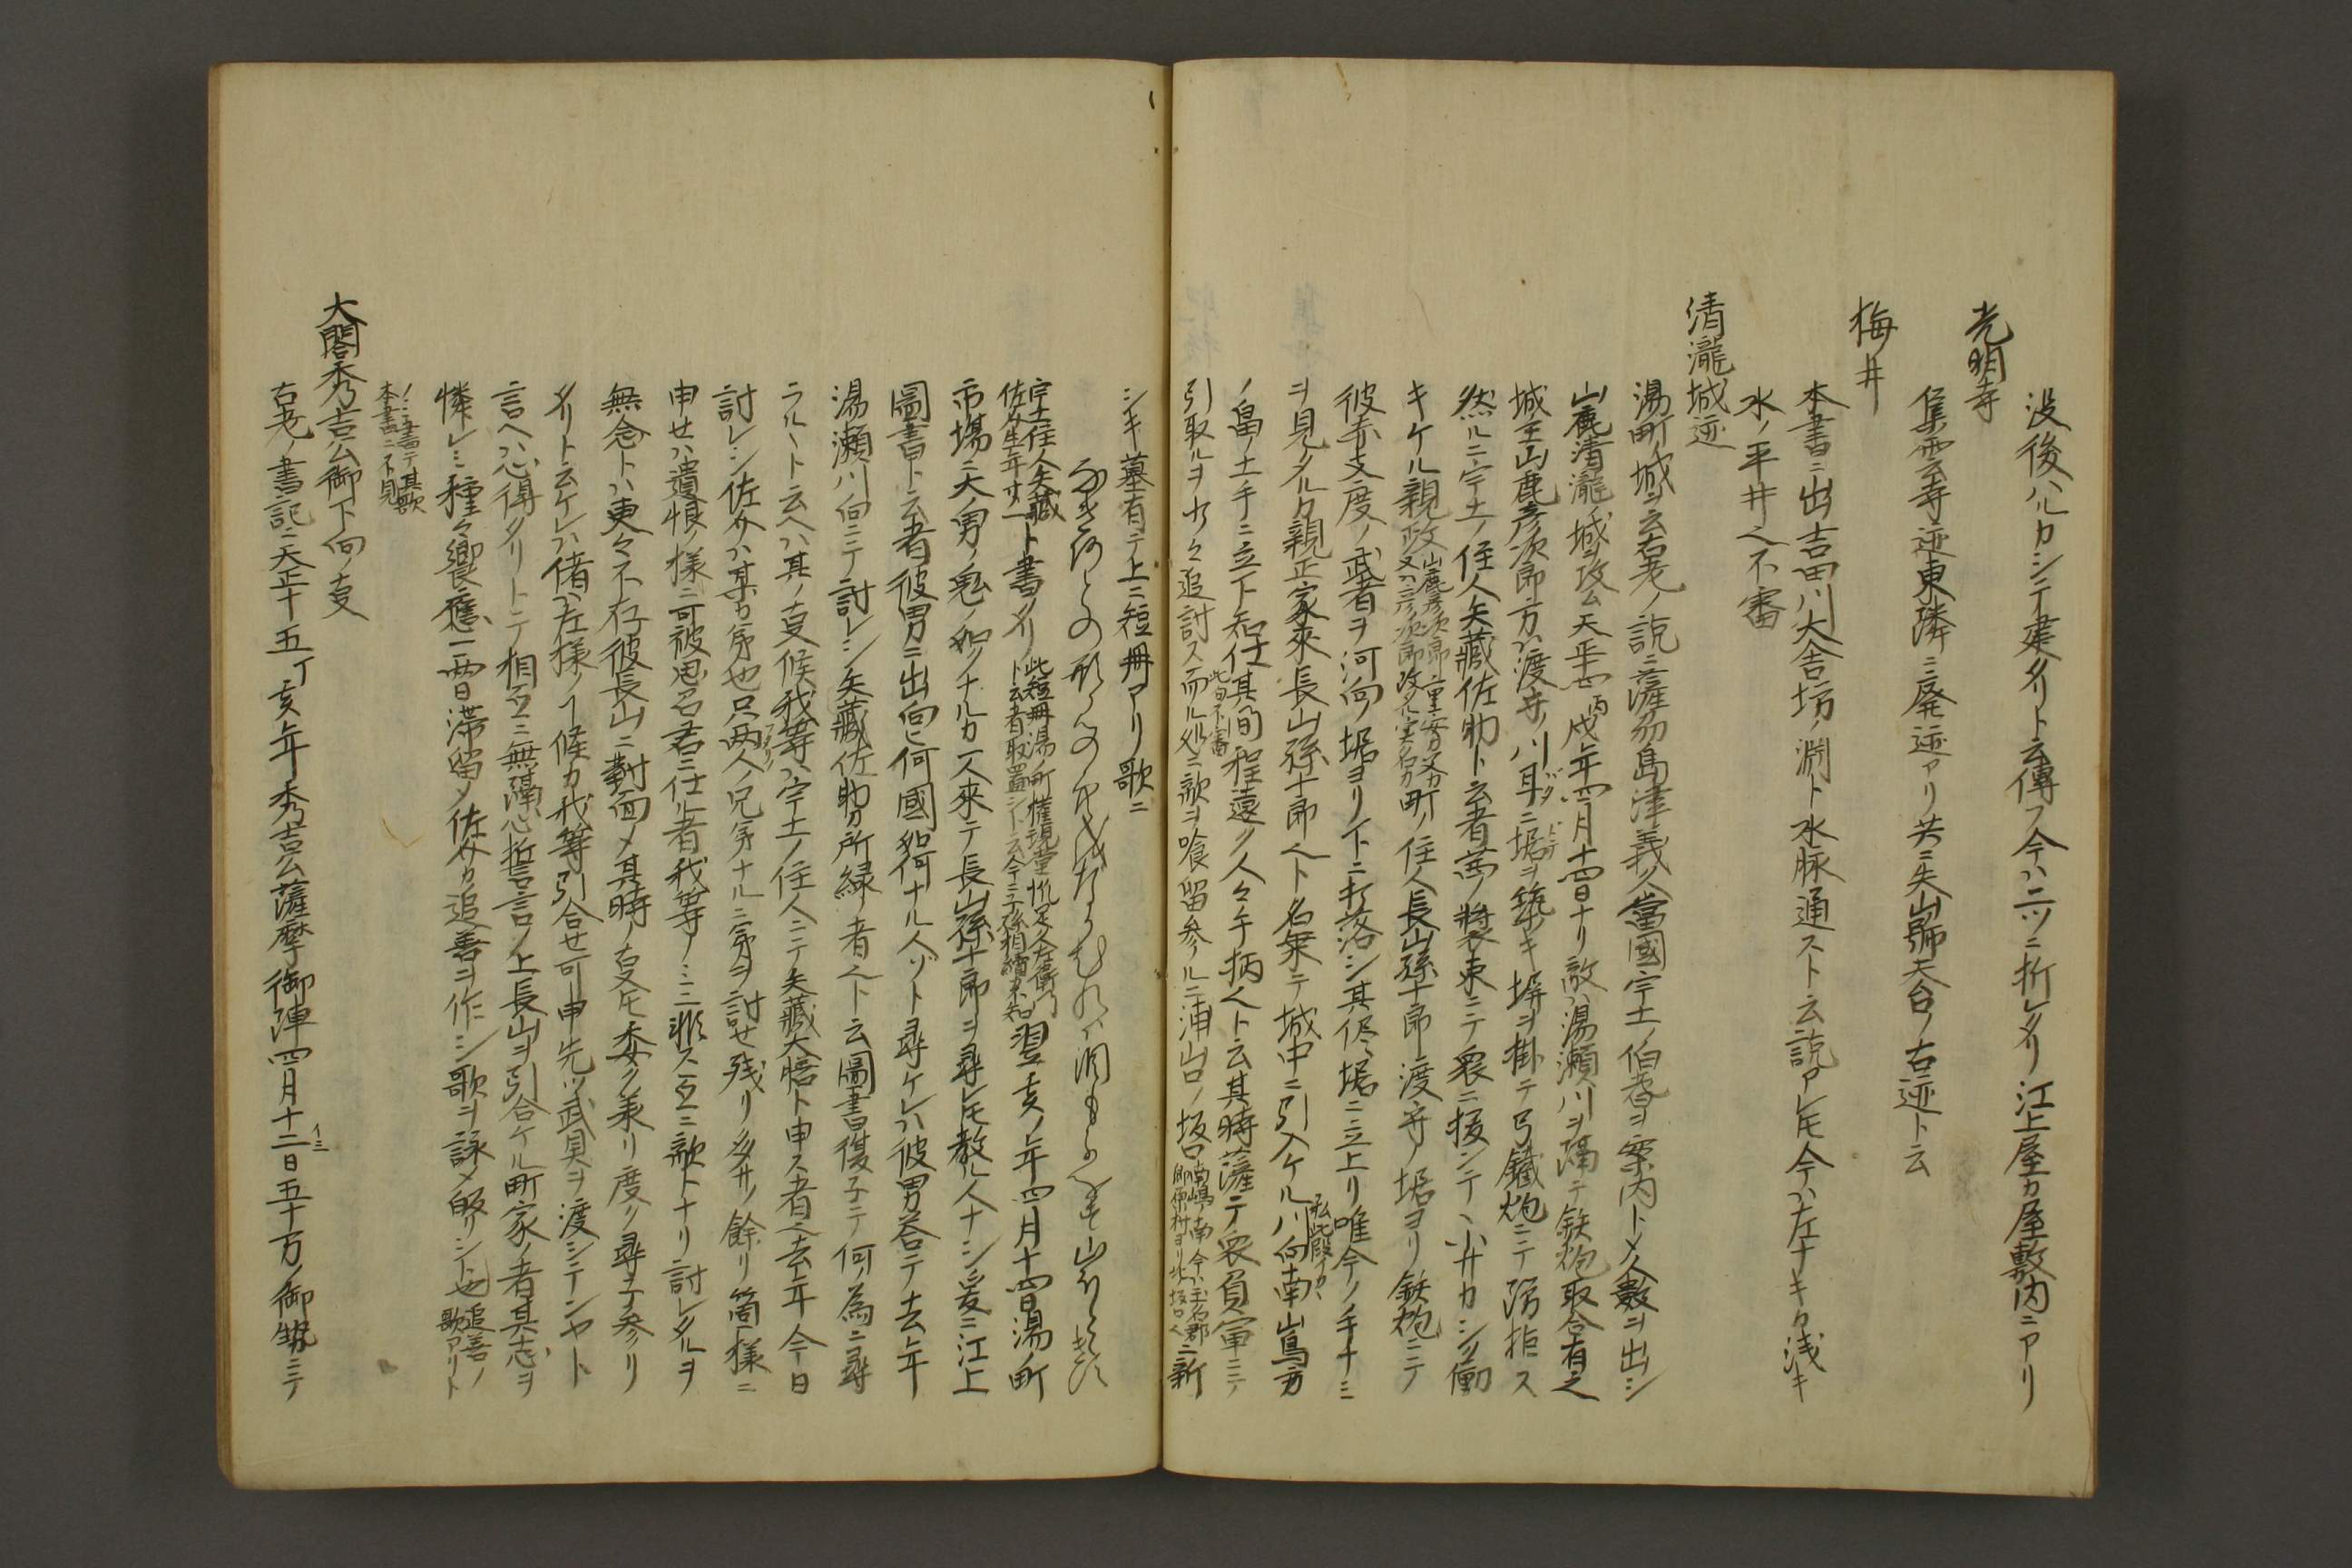 没後ハルカシテ建タリト云傳フ今ハ二ツニ折レタリ江上屋カ屋敷内ニアリ
光明寺
集雲寺迹東隣ニ廃迹アリ共ニ失山号天台ノ古迹ト云
梅井
本書ニ出吉田川大舎坊ノ淵ト水脉通スト云説アレ𪜈今ハ左ナキカ浅キ
水ノ平井也不審
清瀧城迹
湯町ノ城ヲ云古老ノ説ニ薩刕島津義久當國宇土ノ伯耆ヲ案内トメ人數ヲ出シ
山鹿清瀧ノ城ヲ攻ム天正十四丙戌年四月十四日ナリ敵ハ湯瀬川ヲ隔テ鉄炮取合有之
城主山鹿彦次郎方ハ渡守ノ川耳ニ堀ヲ築キ塀ヲ掛テ弓鐵炮ニテ防拒ス
然ルニ宇土ノ住人矢藏佐助ト云者茜ノ装束ニテ衆ニ抜ンテヽ小サカシク働
キケル親政山鹿彦次郎重安カ又カ又ハ彦次郎改タル実名カ町ノ住人長山孫十郎渡守ノ堀ヨリ鉄炮ニテ
彼赤支度ノ武者ヲ河向ノ堀ヨリ下ニ打落シ其侭堀ニ立上リ唯今ノ手ナミ
ヲ見タルカ親正家来長山孫十郎也ト名乗テ城中ニ引入ケル私此段イカヽ川向南嶌方
ノ畠ノ土手ニ立下知仕此旬不審其間程遠ク人々手柄也ト云其時薩テ衆負軍ニテ
引取ルヲ少々追討ス而ル処ニ敵ヲ喰留参ルニ浦山口ノ坂口南嶋南今ハ玉名郡即原村ヨリ此坂口也ニ新
シキ墓有テ上ニ短冊アリ歌ニ
宇土住人矢藏佐介生年廿一ト書タリ此短冊湯ノ町権現堂帆足久左衛門ト云者取置シト云今ニ子孫相續未知翌亥ノ年四月十四日湯町
市場ニ大男ノ鬼ノ如クナルカ一人来テ長山孫十郎ヲ尋レ𪜈教ル人ナシ爰ニ江上
圖書ト云者彼男ニ出向ヒ何國如何ナル人ソト尋ケレハ彼男答テ去年
湯瀬川向ニテ討レシ矢藏佐助カ所縁ノ者也ト云圖書復子テ何ノ為ニ尋
ラルヽト云ヘハ其ノ叓候我等ハ宇土ノ住人ニテ矢藏大㤗ト申ス者也去年今日
討レシ佐介ハ某カ弟也只両人ノ兄弟ナルニ弟ヲ討セ残リ多サノ餘リ箇様ニ
申セハ遺恨ノ様ニ可被思召君ニ仕ル者我等ノミニ非ス互ニ敵トナリ討レタルヲ
無念トハ更々不存彼長山ニ對面メ其時ノ叓𪜈委ク承リ度ク尋子参リ
タリト云ケレハ偖ハ左様ノ⼂候カ我等引合セ可申先ツ武具ヲ渡シテンヤト
言ヘハ心得タリトテ相互ニ無隔心誓言ノ上長山ヲ引合ケル町家ノ者其志ヲ
憐レミ種々饗應一両日滞留メ佐介カ追善ヲ作シ歌ヲ詠メ皈リシト也追善ノ歌アリト
ノミ書テ其歌本書ニ不見
大閤秀吉公御下向ノ叓
古老ノ書記ニ天正十五丁亥年秀吉公薩摩御陣四月十二日五十万ノ御勢ニテ